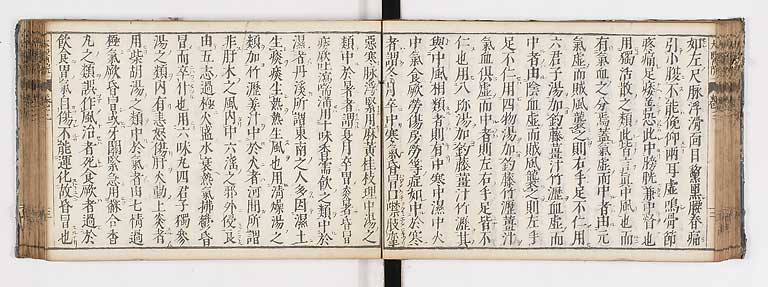 如左尺脉浮滑面目黧黑腰脊痛
引小腹不能俛仰兩耳虛鳴骨節
疼痛足痿善恐此中膀胱兼中腎也
用獨活散之類此皆言真中風也而
有氣血之分焉蓋氣虛而中者由元
氣虛而賊風襲之則右手足不仁用
六君子湯加釣藤薑汁竹瀝血虛而
中者由陰血虛而賊風襲之則左手
足不仁用四物湯加釣藤竹瀝薑汁
氣血俱虛而中者則左右手足皆不
仁也用八珍湯加釣藤薑汁竹瀝其
與中風相類者則有中寒中濕中火
中氣食厥勞傷房勞等症如中於寒
者謂冬月卒中寒氣昏冒口噤肢攣
惡寒脉浮緊用麻黃桂枝理中湯之
類中於暑者謂夏月卒冒炎暑昏冒
痿厥吐瀉喘滿用十味香薷飲之類中於
濕者丹溪所謂東南之人多因濕土
生痰痰生熱熱生風也用清燥湯之
類加竹瀝姜汁中於火者河間所謂
非肝木之風內中六淫之邪外侵良
由五志過極火盛水衰熱氣拂鬱昏
冒而卒什也用六味丸四君子獨參
湯之類內有恚怒傷肝火動上炎者
用柴胡湯之類中於氣者由七情過
極氣厥昏冒或牙關緊急用蘇合香
丸之類誤作風治者死食厥者過於
飲食胃氣自傷不能運化故昏冒也